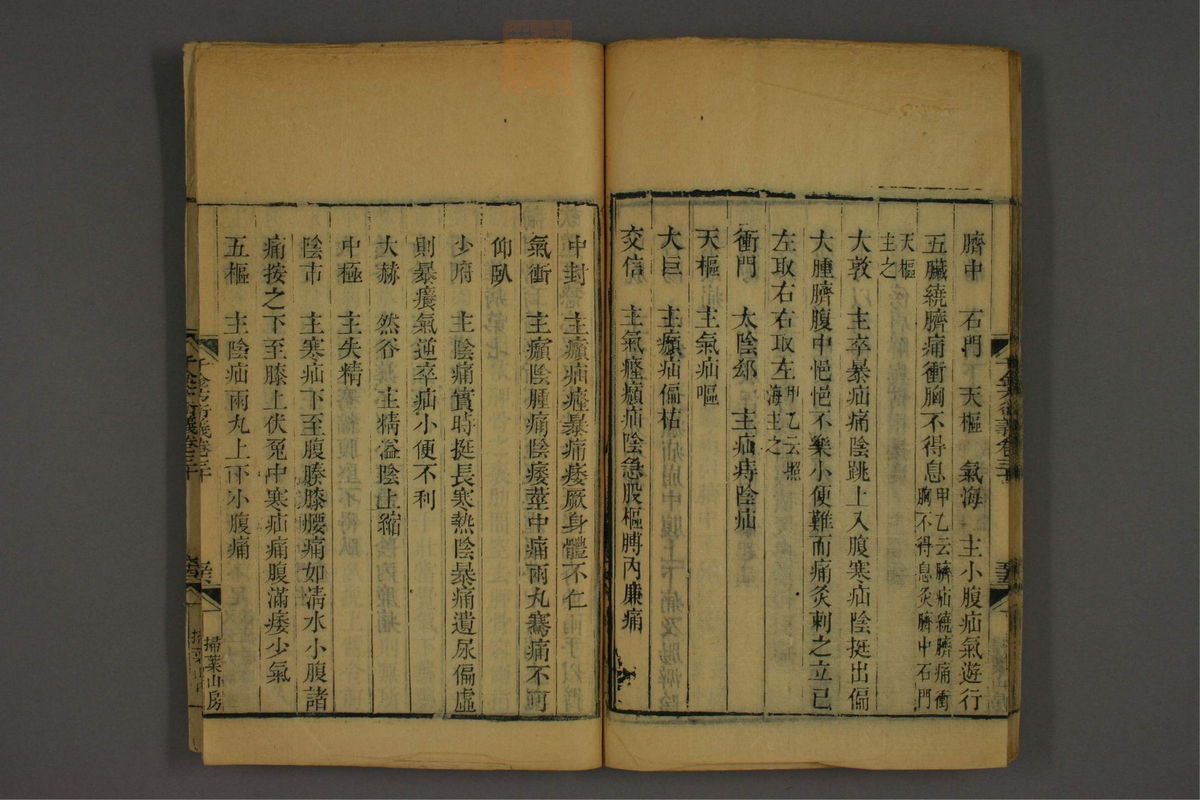 臍中　石門　天樞　氣海　主小腹疝氣遊行
五臟繞臍痛衝胸不得息甲乙云臍疝繞臍痛衝胸不得息灸臍中石門
天樞主之
大敦　主卒暴疝痛陰跳上入腹寒疝陰挺出偏
大腫臍腹中悒悒不樂小便難而痛灸刺之立已
左取右右取左甲乙云照海主之
衝門　太陰郄　主疝痔陰疝
天樞主氣疝嘔
大巨　主㿗疝偏祜
交信　主氣癃㿗疝陰急股樞膊內廉痛
中封　主㿗疝癃暴痛痿厥身體不仁
氣衝　主㿗陰腫痛陰痿莖中痛兩丸騫痛不可
仰臥
少府　主陰痛實時挺長寒熱陰暴痛遺尿偏虛
則暴癢氣逆卒疝小便不利
大赫　然谷　主精溢陰上縮
中極　主失精
陰市　主寒疝下至腹膝膝腰痛如清水小腹諸
痛按之下至膝上伏兔中寒疝痛腹滿痿少氣
五樞　主陰疝兩丸上下小腹痛
掃葉山房